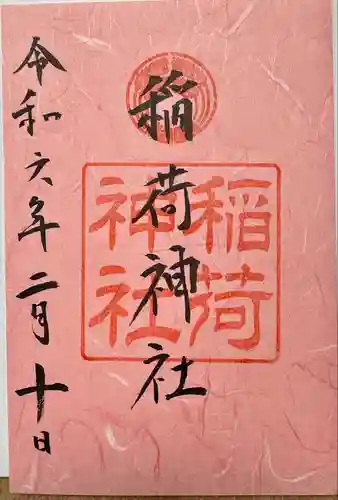 稲荷神社
稲荷
神社
令和六年二月十日